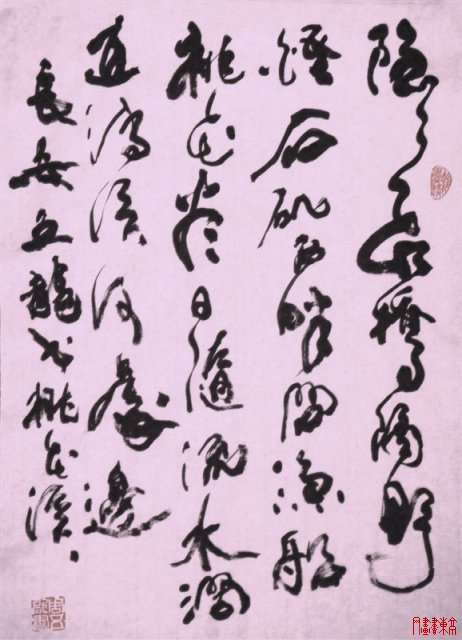 隱隱飛橋隔野
煙石磯西畔問漁船
桃花盡日隨流水洞
在清溪何處邊
長安五龍書桃花溪